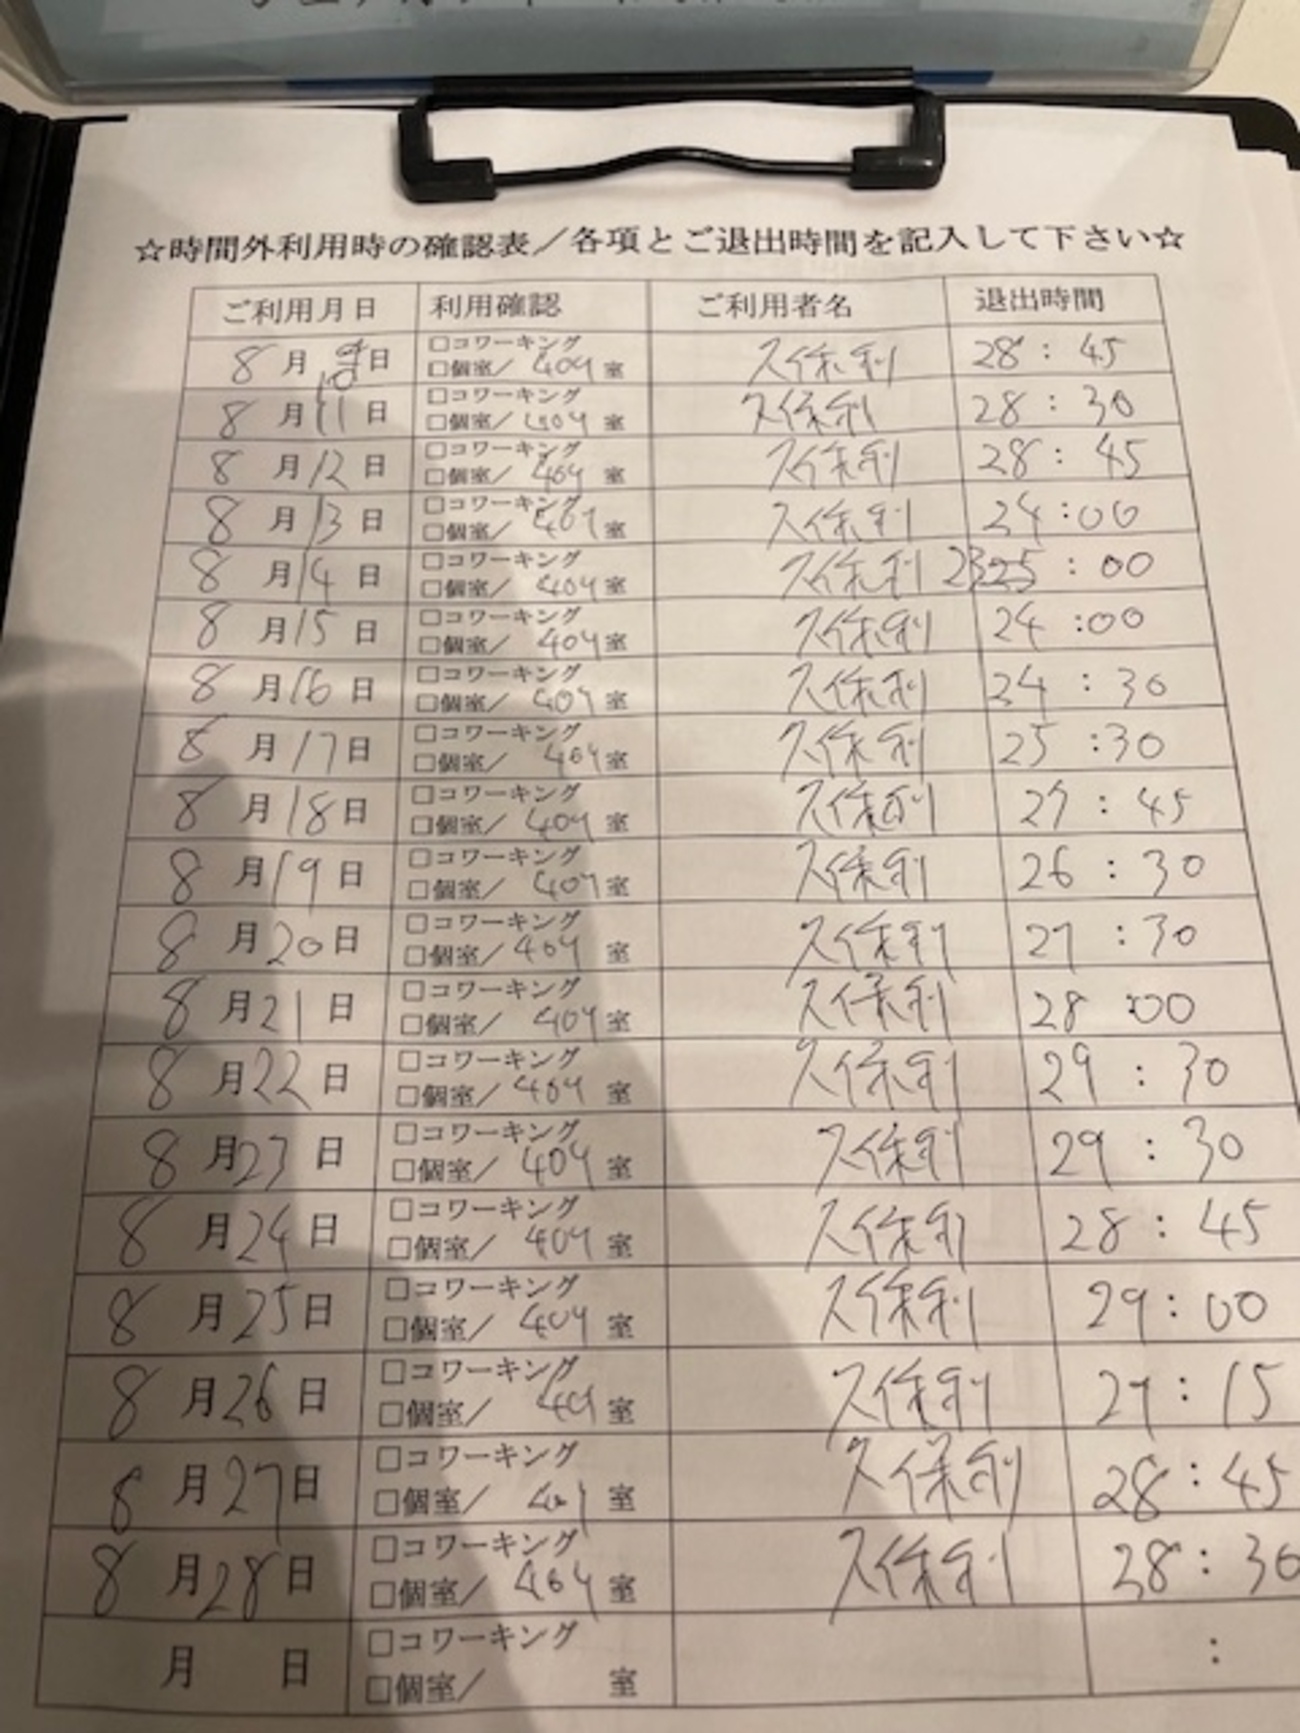 ☆時間外利用時の確認表／各項とご退出時間を記入して下さい☆
ご利用月日 利用確認 ご利用者名 退出時間
8月10日 □コワーキング □個室／404室 久保利 28:45
8月11日 □コワーキング □個室／404室 久保利 28:30
8月12日 □コワーキング □個室／404室 久保利 28:45
8月13日 □コワーキング □個室／404室 久保利 24:00
8月14日 □コワーキング □個室／404室 久保利 23:00
8月15日 □コワーキング □個室／404室 久保利 24:00
8月16日 □コワーキング □個室／404室 久保利 24:30
8月17日 □コワーキング □個室／404室 久保利 25:30
8月18日 □コワーキング □個室／404室 久保利 27:45
8月19日 □コワーキング □個室／404室 久保利 26:30
8月20日 □コワーキング □個室／404室 久保利 27:30
8月21日 □コワーキング □個室／404室 久保利 28:00
8月22日 □コワーキング □個室／404室 久保利 29:30
8月23日 □コワーキング □個室／404室 久保利 29:30
8月24日 □コワーキング □個室／404室 久保利 28:45
8月25日 □コワーキング □個室／404室 久保利 29:00
8月26日 □コワーキング □個室／404室 久保利 29:15
8月27日 □コワーキング □個室／404室 久保利 28:45
8月28日 □コワーキング □個室／404室 久保利 28:30
月 日 □コワーキング □個室／ 室 :